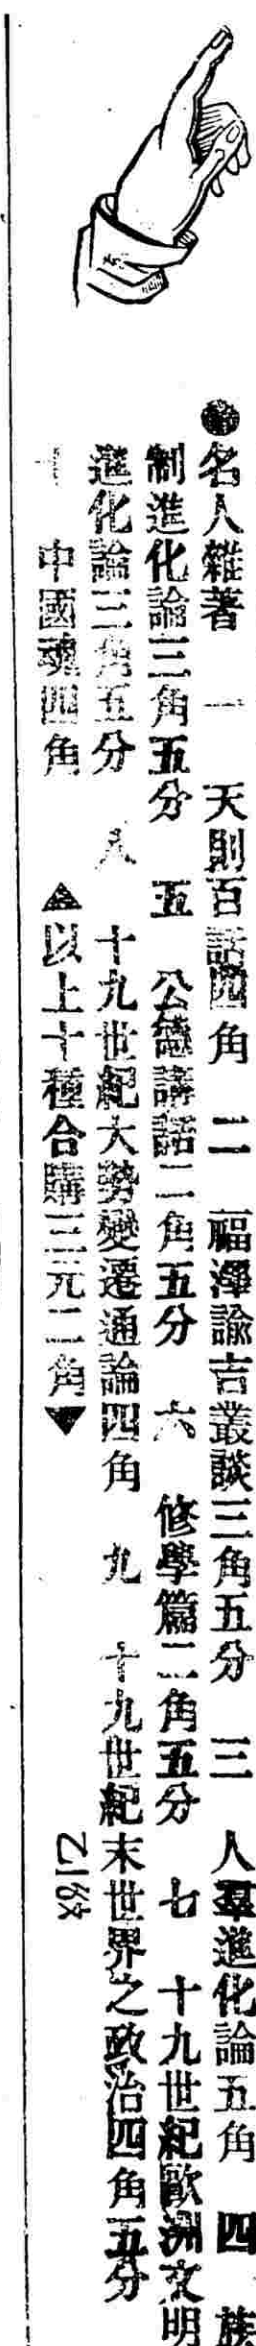 名人雜著 一 天則百話四角 二 福澤諭吉叢談三角五分 三 人羣進化論五角 四 族
制進化論三角五分 五 公德講話二角五分 六 修學篇二角五分 七 十九世紀歐洲文明
進化論三角五分 八 十九世紀大勢變遷通論四角 九 十九世紀末世界之政治四角五分
十 中國魂四角 ▲以上十種合購三元二角▼